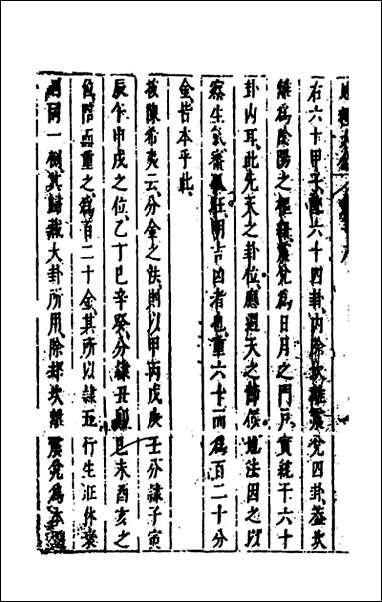 右六十甲子配六十四卦内除坎離震兌四卦蓋坎
離為陰陽之樞震兌為日月之門戶實統于六十
卦内耳此先天之卦位應週天之節候法因之以
察生氣審旺明吉凶者也重六十而為百二十分
金皆本乎此
按陳希夷云分金之法則以甲丙戊庚壬分隸子寅
辰午申戌之位乙丁巳辛癸分隸丑卯巳未酉亥之
位陪而重之為百二十金其所以隸五行生旺休衰
同一例其歸藏大卦所用除却坎離震兌為本